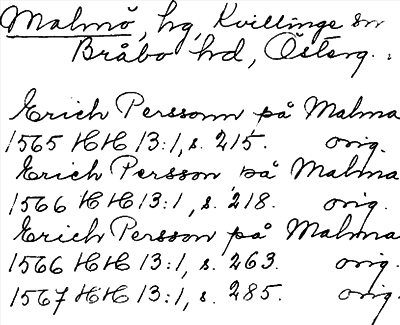 Malmö, hg, Kvillinge sn
Bråbo hd, Österg.:
Erich Personn på Malma
1565 HH 13:1, s. 215. orig.
Erich Persson på Malma
1566 HH 13:1, s. 218. orig.
Erich Persson på Malma
1566 HH 13:1, s. 263. orig.
1567 HH 13:1, s. 285. orig.